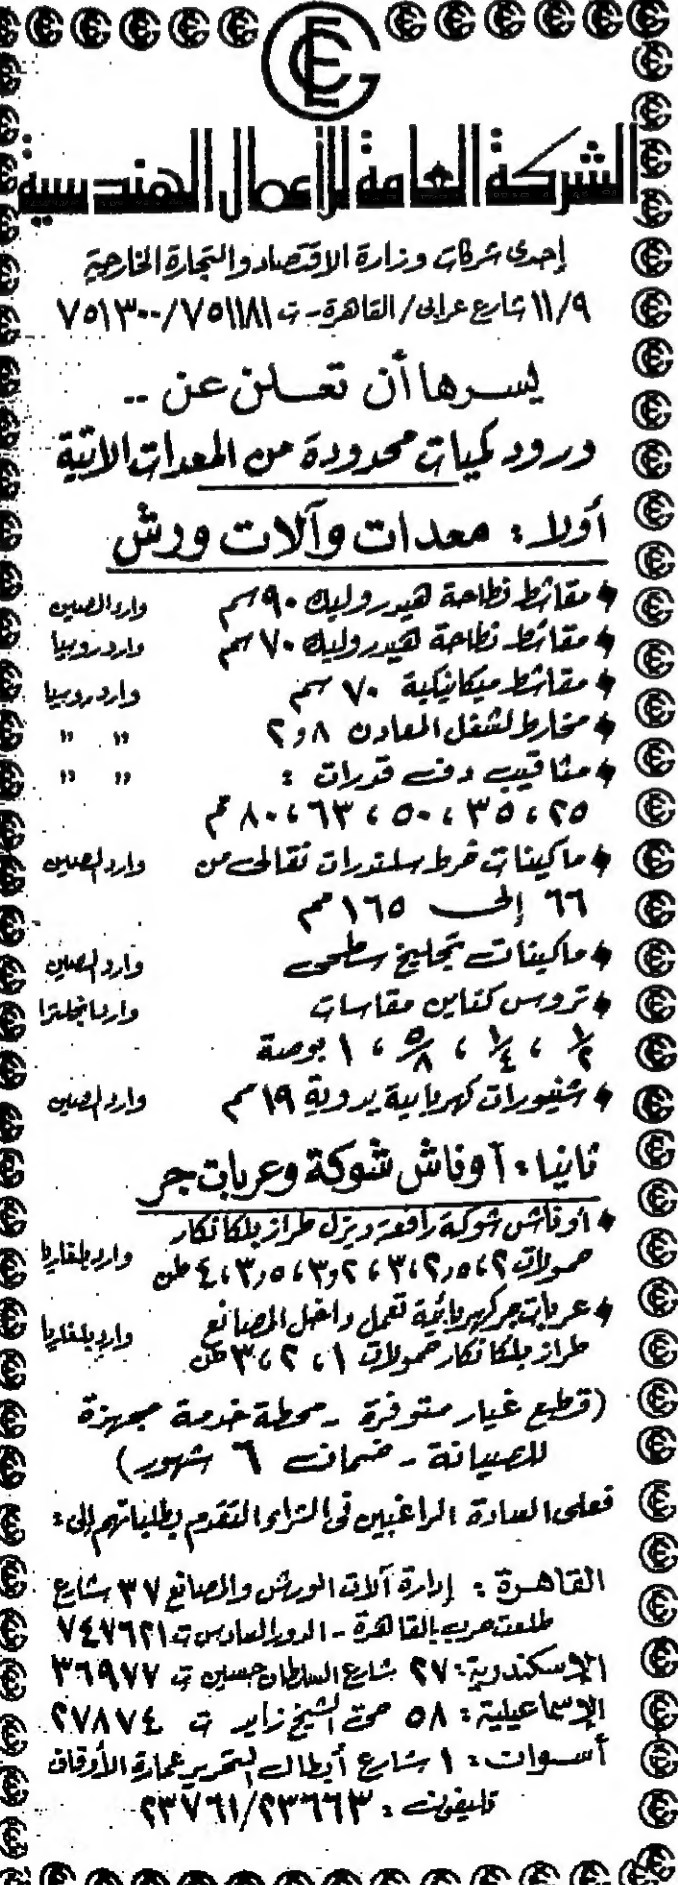 الشركة العامة للأعمال الهندسية
إحدى شركات وزارة الاقتصاد والتجارة الخارجية
١١/٩ شارع عرابى / القاهرة - ت ٧٥١١٨١/٧٥١٣٠٠
يسرها أن تعلن عن ..
ورود كميات محدودة من المعدات الآتية
أولا : معدات وآلات ورش
مقاشط نطاحة هيدروليك ٩٠ سم وارد الصين
مقاشط نطاحة هيدروليك ٧٠ سم وارد روسيا
مقاشط ميكانيكية ٧٠ سم وارد روسيا
مخارط لشغل المعادن ٨ و ٢ " "
مثاقيب دف قدرات : " "
٢٥ ، ٣٥ ، ٥٠ ، ٦٣ ، ٨٠ مم
ماكينات خرط سلندرات نقالى من وارد الصين
٦٦ إلى ١٦٥ مم
ماكينات تجليخ سطحى وارد الصين
تروس كتاين مقاسات وارد انجلترا
١/٢ ، ١/٤ ، ٥/٨ ، ١ بوصة
شنيورات كهربائية يدوية ١٩ مم وارد الصين
ثانيا : أوناش شوكة وعربات جر
أوناش شوكة رافعة ديزل طراز بلكانكار
حمولات ٢ ، ٢٫٥ ، ٣ ، ٣٫٢ ، ٣٫٥ ، ٤ طن وارد بلغاريا
عربات جر كهربائية تعمل داخل المصانع
طراز بلكانكار حمولات ١ ، ٢ ، ٣ طن وارد بلغاريا
(قطع غيار متوفرة - محطة خدمة مجهزة
للصيانة - ضمان ٦ شهور)
فعلى السادة الراغبين فى الشراء التقدم بطلباتهم إلى :
القاهرة : إدارة آلات الورش والمصانع ٣٧ شارع
طلعت حرب بالقاهرة - الدور السادس ت ٧٤٧٦٢١
الإسكندرية : ٢٧ شارع السلطان حسين ت ٣٦٩٧٧
الإسماعيلية : ٥٨ حى الشيخ زايد ت ٢٧٨٧٤
أسوان : ١ شارع أبطال التحرير عمارة الأوقاف
تليفون : ٢٣٦٦٣/٢٣٧٦١